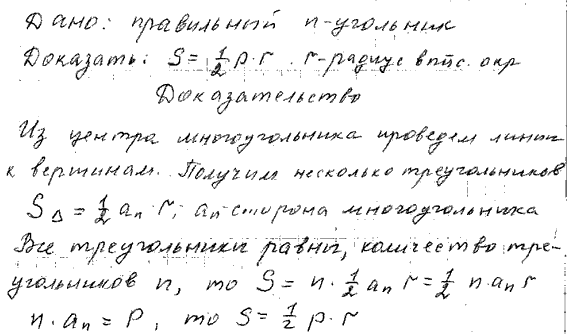 Дано: правильный n-угольник
Доказать: S = 1/2 p · r . r - радиус впис. окр
Доказательство
Из центра многоугольника проведем линии
к вершинам. Получим несколько треугольников
S△ = 1/2 aₙ r; aₙ сторона многоугольника
Все треугольники равны, количество тре-
угольников n, то S = n · 1/2 aₙ r = 1/2 n aₙ r
n · aₙ = P, то S = 1/2 p · r